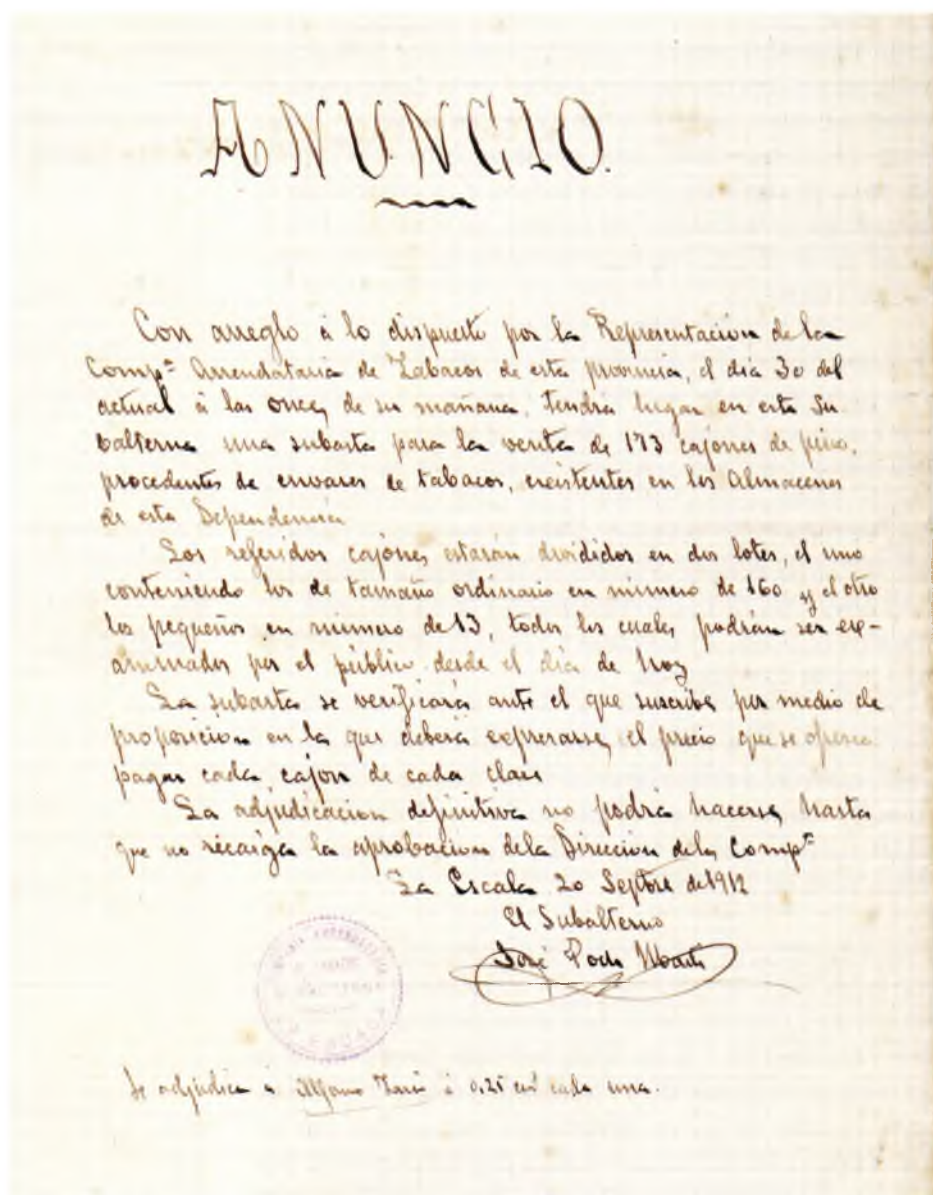 ANUNCIO.
Con arreglo á lo dispuesto por la Representacion de la
Compª Arrendataria de Tabacos de esta provincia, el dia 30 del
actual á las once, de su mañana, tendrá lugar en esta Su
balterna una subasta para la venta de 173 cajones de pino,
procedentes de envases de tabacos, existentes en los Almacenes
de esta Dependencia
Los referidos cajones, estarán divididos en dos lotes, el uno
conteniendo los de tamaño ordinario en número de 160 y el otro
los pequeños en número de 13, todos los cuales, podrán ser ex-
aminados por el público desde el dia de hoy
La subasta se verificará ante el que suscribe, por medio de
proposicion en la que deberá expresarse, el precio que se ofrezca
pagar cada cajon de cada clase
La adjudicacion definitiva no podrá hacerse, hasta
que no recaiga la aprobacion dela Direccion dela Compª
La Escala 20 Septbre de 1912
El Subalterno
José Poch
LA ESCALA
Se adjudica á á 0,25 cada una.